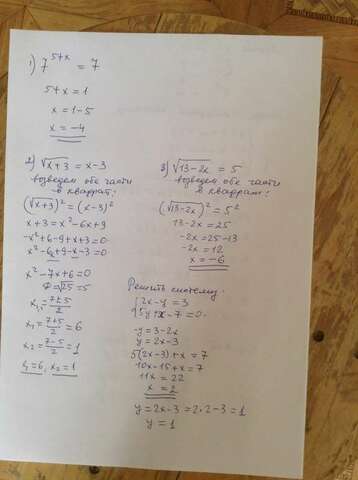 1) 7^(5+x) = 7
5+x = 1
x = 1-5
x = -4
2) √x+3 = x-3
возведем обе части
в квадрат:
(√x+3)² = (x-3)²
x+3 = x²-6x+9
-x²+6-9+x+3=0
x²-6x+9-x-3=0
x²-7x+6=0
√25=5
x₁,=(7±5)/2
x₁=(7+5)/2=6
x₂=(7-5)/2=1
x₁=6, x₂=1
3) √13-2x = 5
возведем обе части
в квадрат:
(√13-2x)² = 5²
13-2x=25
-2x=25-13
-2x=12
x=-6
Решить систему.
2x-y=3
5y+x-7=0
-y=3-2x
y=2x-3
5(2x-3)+x=7
10x-15+x=7
11x=22
x=2
y=2x-3=2·2-3=1
y=1